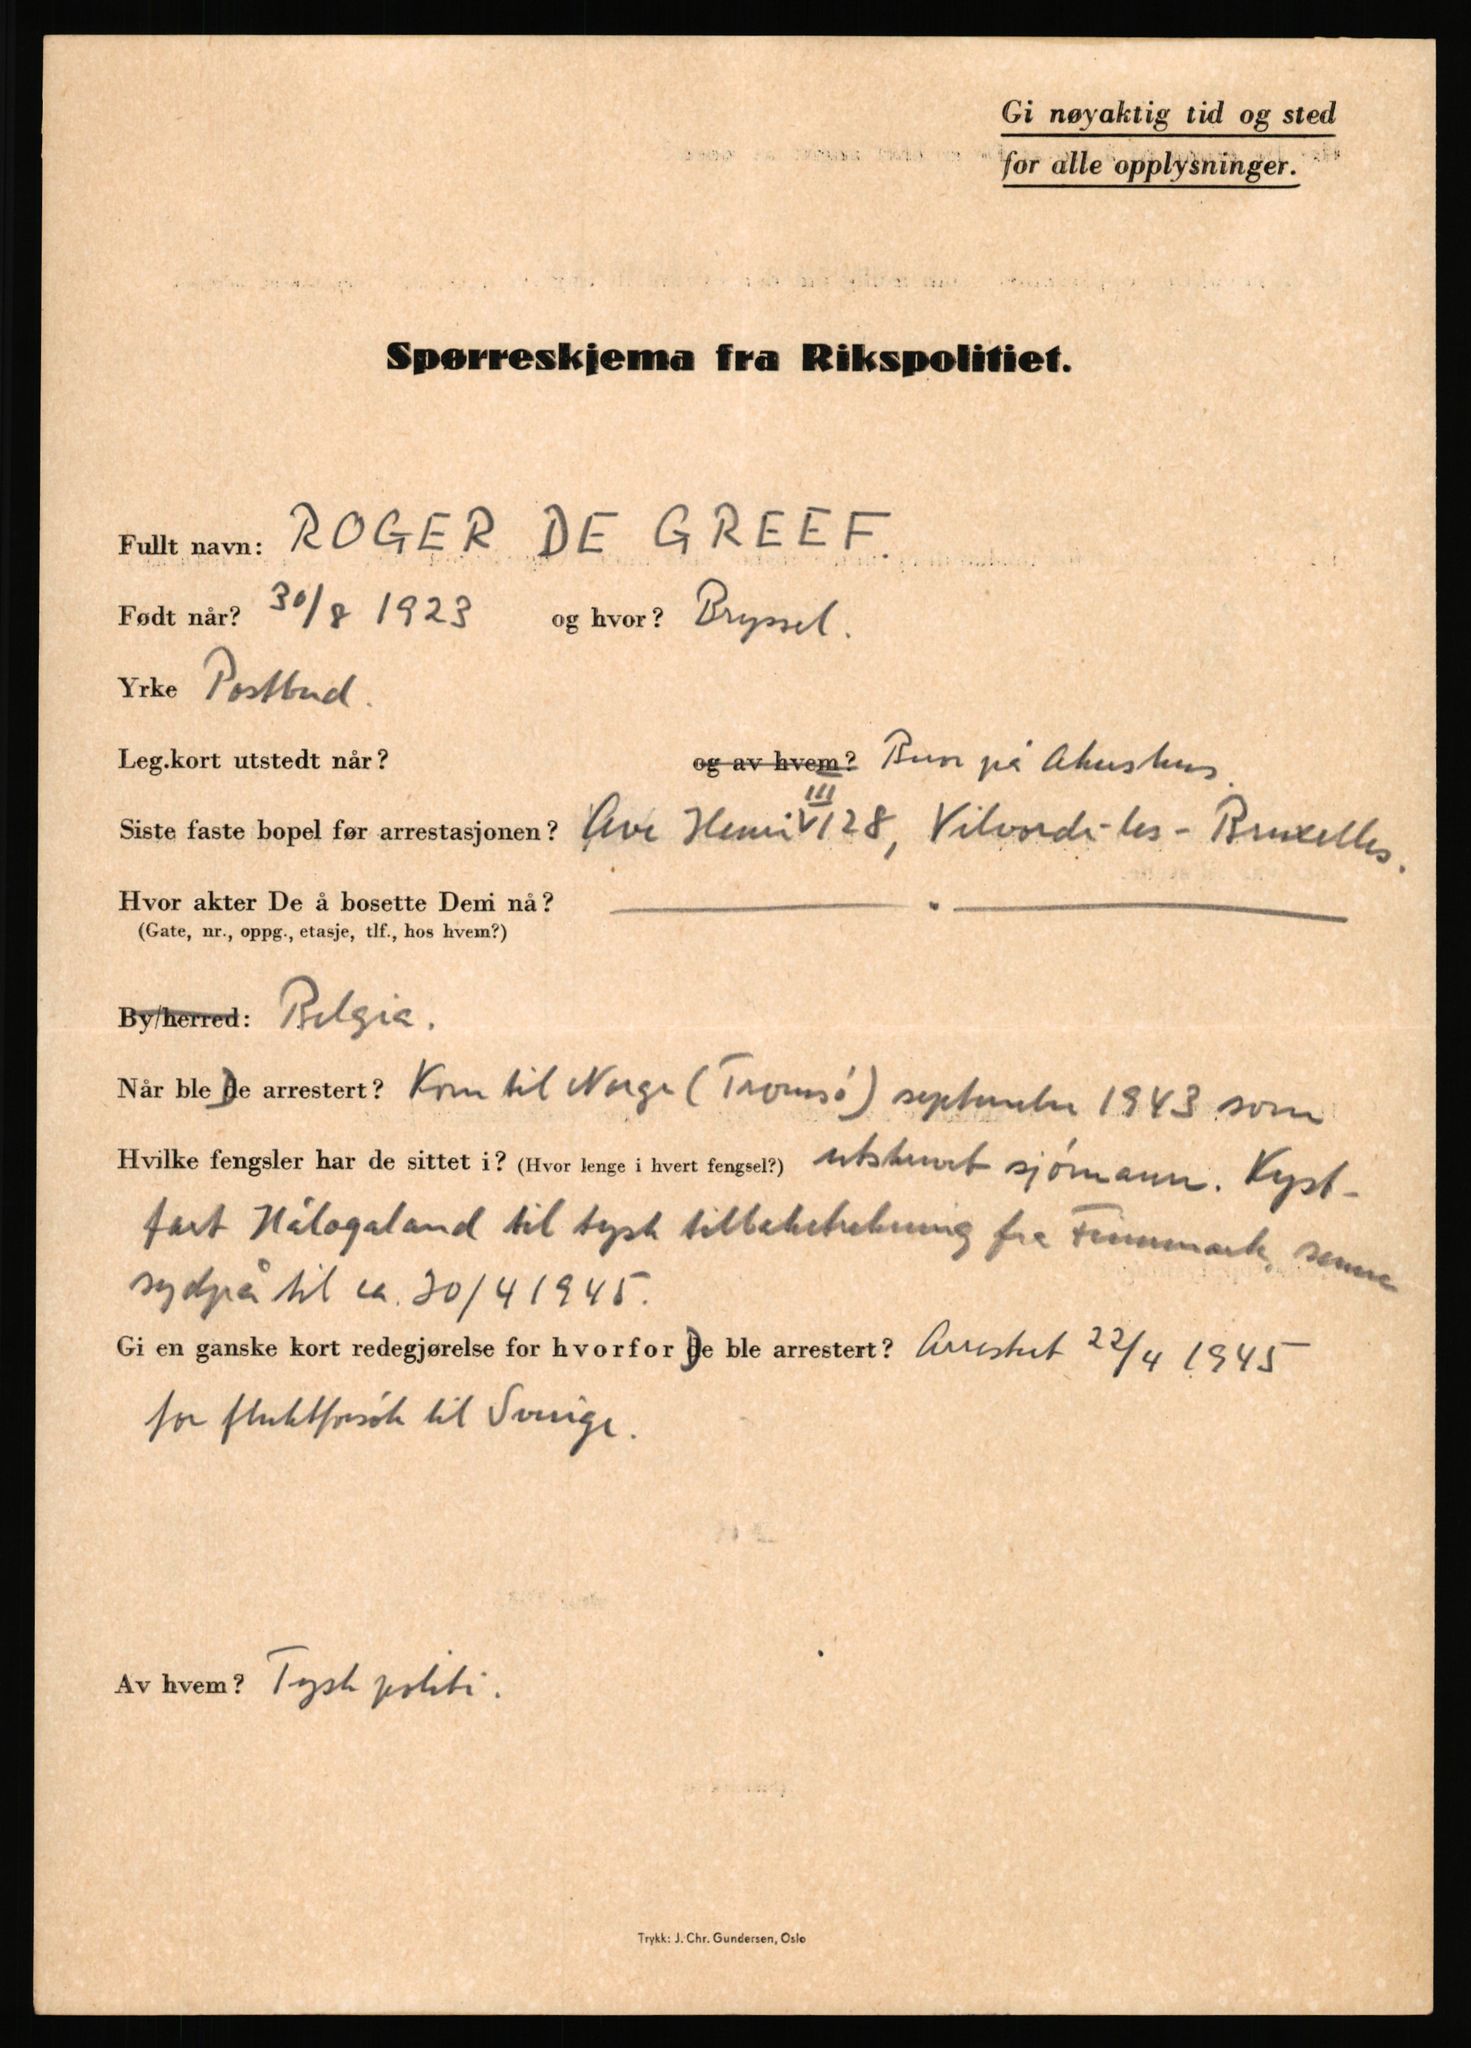 Gi nøyaktig tid og sted
for alle opplysninger.
Spørreskjema fra Rikspolitiet.
Fullt navn: ROGER DE GREEF.
Født når? 30/8 1923 og hvor? Bryssel.
Yrke Postbud.
Leg.kort utstedt når? og av hvem? Buor på Akushus.
III
Siste faste bopel før arrestasjonen? Ave Henri VI 28, Vilvorde-les-Bruxelles.
Hvor akter De å bosette Dem nå?
(Gate, nr., oppg., etasje, tlf., hos hvem?)
By/herred: Belgia.
Når ble De arrestert? Kom til Norge (Tromsö) september 1943 som
Hvilke fengsler har de sittet i? (Hvor lenge i hvert fengsel?) utskrevet sjömann. Kyst-
fart Hålogaland til tysk tilbaketrekning fra Finnmark, senere
sydpå til ca. 20/4 1945.
Gi en ganske kort redegjørelse for hvorfor De ble arrestert? Arrestert 22/4 1945
for fluktforsök til Sverige.
Av hvem? Tysk politi.
Trykk: J. Chr. Gundersen, Oslo